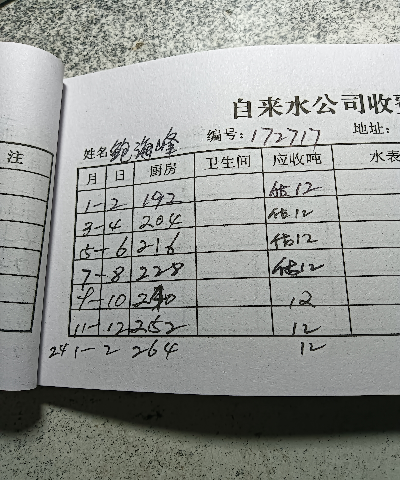 自来水公司收
姓名 鲍海峰 编号：172717 地址：
注
月 日 厨房 卫生间 应收吨 水表
1-2 192 估12
3-4 204 估12
5-6 216 估12
7-8 228 估12
9-10 240 12
11-12 252 12
24 1-2 264 12